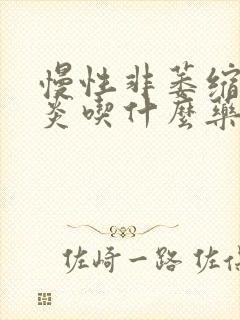 慢性非萎缩
炎喫什麼藥
佐崎一路 佐佰